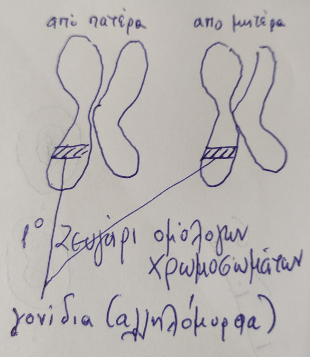 από πατέρα
απο μητέρα
1º Ζευγάρι ομόλογων
χρωμοσωμάτων
γονίδια (αλληλόμορφα)